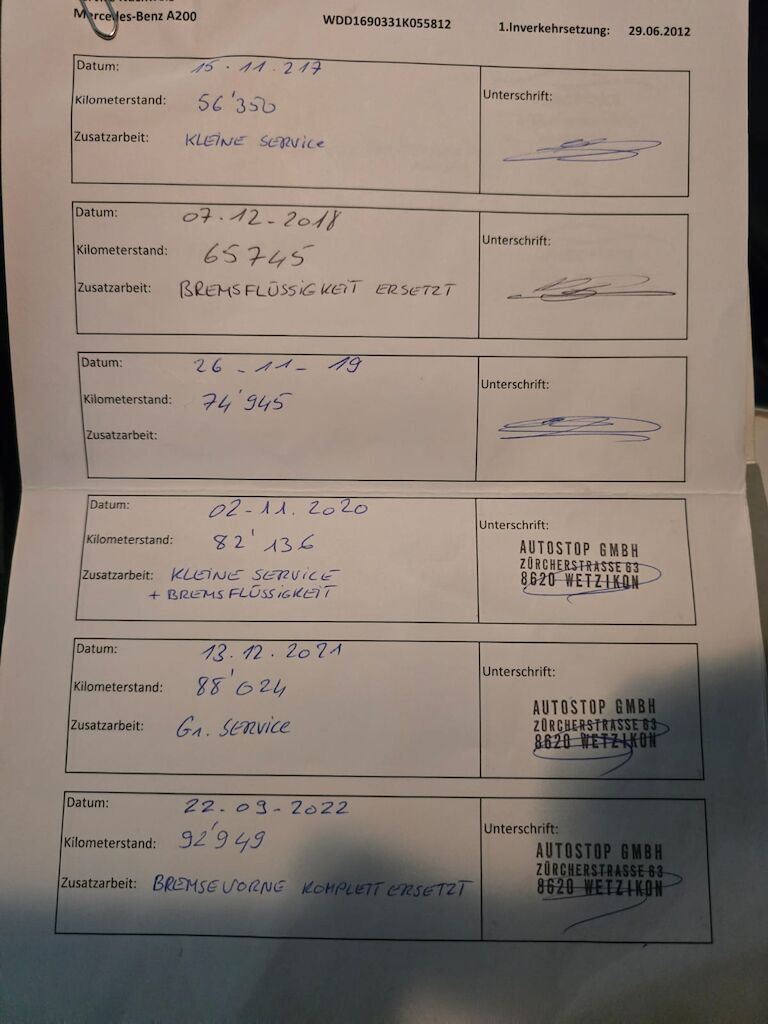 Mercedes-Benz A200 WDD1690331K055812 1.Inverkehrsetzung: 29.06.2012
Datum: 15.11.217
Kilometerstand: 56'350
Zusatzarbeit: KLEINE SERVICE
Unterschrift:
Datum: 07.12-2018
Kilometerstand: 65745
Zusatzarbeit: BREMSFLÜSSIGKEIT ERSETZT
Unterschrift:
Datum: 26-11-19
Kilometerstand: 74'945
Zusatzarbeit:
Unterschrift:
Datum: 02-11.2020
Kilometerstand: 82'136
Zusatzarbeit: KLEINE SERVICE
+ BREMSFLÜSSIGKEIT
Unterschrift:
AUTOSTOP GMBH
ZÜRCHERSTRASSE 63
8620 WETZIKON
Datum: 13.12.2021
Kilometerstand: 88'024
Zusatzarbeit: Gr. SERVICE
Unterschrift:
AUTOSTOP GMBH
ZÜRCHERSTRASSE 63
8620 WETZIKON
Datum: 22-09-2022
Kilometerstand: 92'949
Zusatzarbeit: BREMSE VORNE KOMPLETT ERSETZT
Unterschrift:
AUTOSTOP GMBH
ZÜRCHERSTRASSE 63
8620 WETZIKON